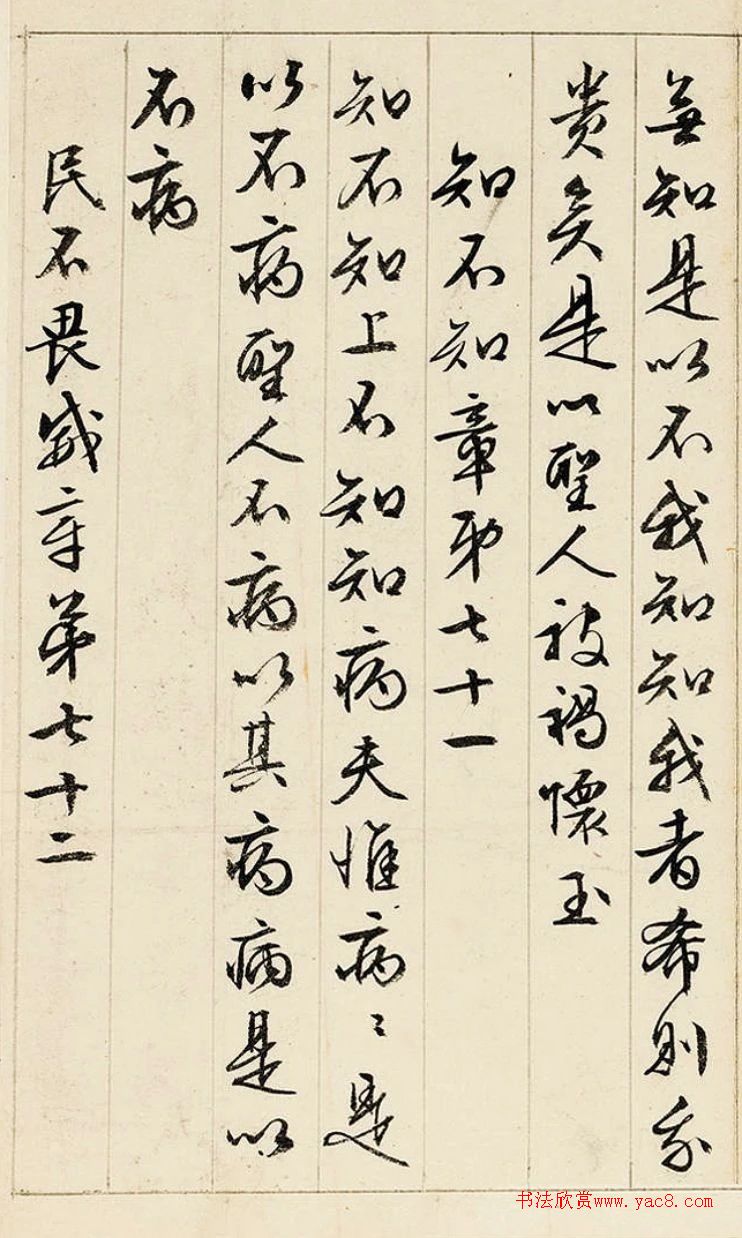 無知是以不我知知我者希則我
贵矣是以聖人被褐懷玉
知不知章弟七十一
知不知上不知知病夫惟病〻是
以不病聖人不病以其病病是以
不病
民不畏威章弟七十二
书法欣赏www.yac8.com